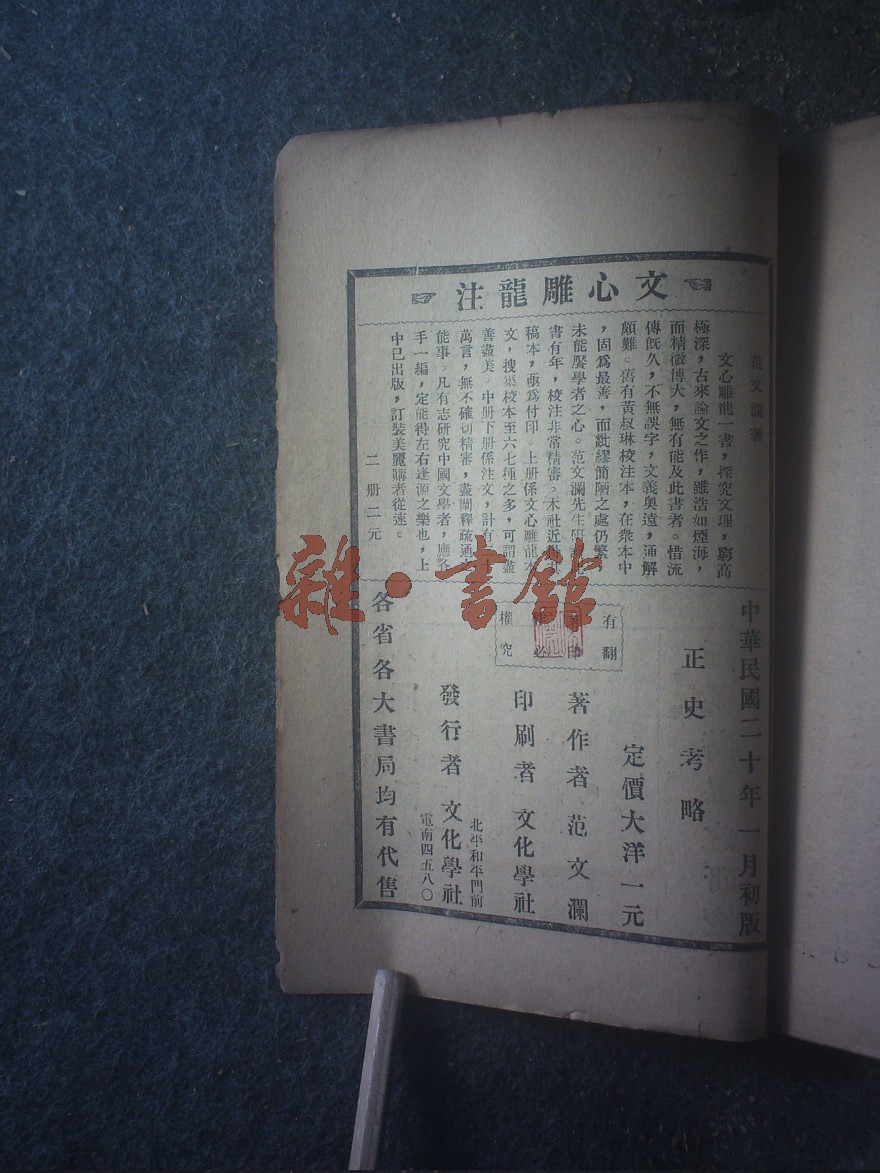 文心雕龍注
范文瀾著
文心雕龍一書，探究文理，窮高
極深，古來論文之作，雖浩如煙海，
而精微博大，無有能及此書者。惜流
傳旣久，不無誤字，文義奥遠，通解
頗難。舊有黃叔琳校注本，在衆本中
，固爲最善，而紕繆簡陋之處仍繁，
未能饜學者之心。范文瀾先生研
書有年，校注非常精審。本社近
稿本，亟爲付印。上册係文心雕龍本
文，搜集校本至六七種之多，可謂盡
善盡美。中册下册係注文，計有
萬言，無不確切精審，盡闡釋疏通
能事。凡有志研究中國文學者，應各
手一編，定能得左右逢源之樂也，上
中已出版，訂裝美麗購者從速。
二册二元
中華民國二十年一月初版
正史考略
定價大洋一元
有
翻
印
必
權
究
著作者 范文瀾
印刷者 文化學社
北平和平門前
發行者 文化學社
電南四五八〇
各省各大書局均有代售
雜·書館